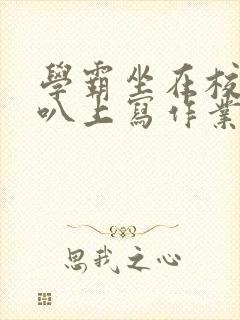 學霸坐在校
叭上寫作業
思我之心